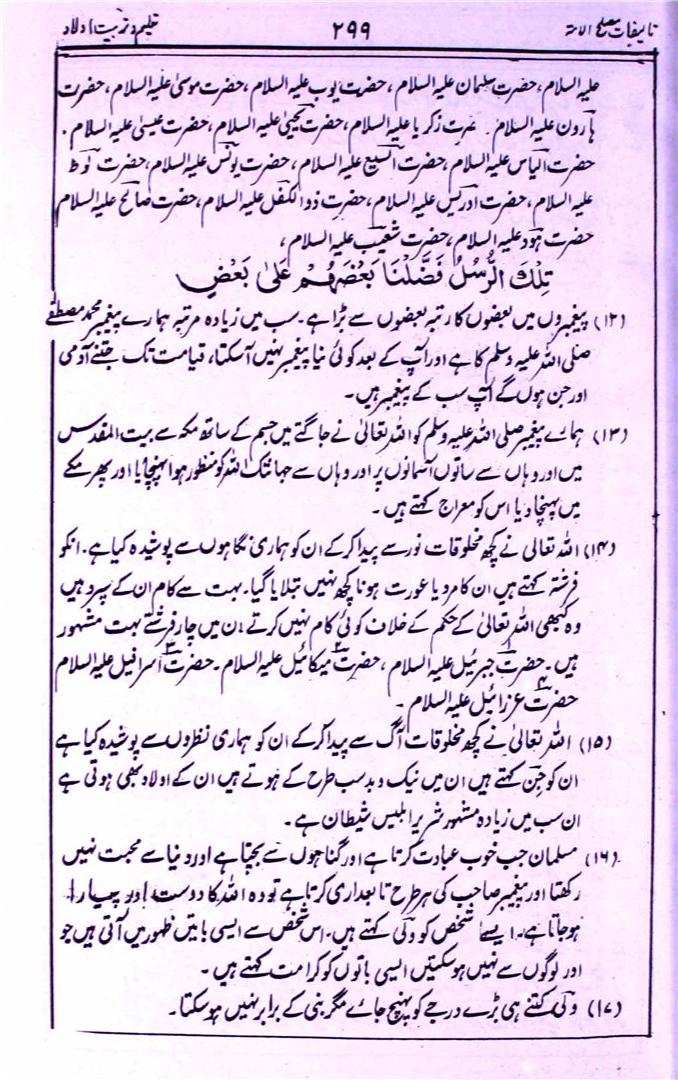 تالیفات مصلح الامۃ ۲۹۹ تعلیم و تربیت اولاد
علیہ السلام، حضرت سلمان علیہ السلام، حضرت ایوب علیہ السلام، حضرت موسیٰ علیہ السلام، حضرت
ہارون علیہ السلام۔ حضرت زکریا علیہ السلام، حضرت یحییٰ علیہ السلام، حضرت عیسیٰ علیہ السلام۔
حضرت الیاس علیہ السلام، حضرت الیسع علیہ السلام، حضرت یونس علیہ السلام، حضرت لوط
علیہ السلام، حضرت ادریس علیہ السلام، حضرت ذوالکفل علیہ السلام، حضرت صالح علیہ السلام
حضرت ہود علیہ السلام، حضرت شعیب علیہ السلام،
تِلْكَ الرُّسُلُ فَضَّلْنَا بَعْضَهُمْ عَلٰى بَعْضٍ
(۱۲) پیغمبروں میں بعضوں کا رتبہ بعضوں سے بڑا ہے۔ سب میں زیادہ مرتبہ ہمارے پیغمبر محمد مصطفےٰ
صلی اللہ علیہ وسلم کا ہے اور آپ کے بعد کوئی نیا پیغمبر نہیں آسکتا، قیامت تک جتنے آدمی
اور جن ہوں گے آپ سب کے پیغمبر ہیں۔
(۱۳) ہمارے پیغمبر صلی اللہ علیہ وسلم کو اللہ تعالیٰ نے جاگتے میں جسم کے ساتھ مکہ سے بیت المقدس
میں اور وہاں سے ساتوں آسمانوں پر اور وہاں سے جہانتک اللہ کو منظور ہوا پہنچایا اور پھر مکے
میں پہنچا دیا اس کو معراج کہتے ہیں۔
(۱۴) اللہ تعالیٰ نے کچھ مخلوقات نور سے پیدا کرکے ان کو ہماری نگاہوں سے پوشیدہ کیا ہے۔ انکو
فرشتہ کہتے ہیں ان کا مرد یا عورت ہونا کچھ نہیں بتلایا گیا۔ بہت سے کام ان کے سپرد ہیں
وہ کبھی اللہ تعالیٰ کے حکم کے خلاف کوئی کام نہیں کرتے۔ ان میں چار فرشتے بہت مشہور
ہیں۔ حضرت جبرئیل علیہ السلام، حضرت۲ میکائیل علیہ السلام۔ حضرت۳ اسرافیل علیہ السلام
حضرت۴ عزرائیل علیہ السلام۔
(۱۵) اللہ تعالیٰ نے کچھ مخلوقات آگ سے پیدا کرکے ان کو ہماری نظروں سے پوشیدہ کیا ہے
ان کو جن کہتے ہیں ان میں نیک و بد سب طرح کے ہوتے ہیں ان کے اولاد بھی ہوتی ہے
ان سب میں زیادہ مشہور شریر ابلیس شیطان ہے۔
(۱۶) مسلمان جب خوب عبادت کرتا ہے اور گناہوں سے بچتا ہے اور دنیا سے محبت نہیں
رکھتا اور پیغمبر صاحب کی ہر طرح تابعداری کرتا ہے تو وہ اللہ کا دوست اور پیارا
ہوجاتا ہے۔ ایسے شخص کو ولی کہتے ہیں۔ اس شخص سے ایسی باتیں ظہور میں آتی ہیں جو
اور لوگوں سے نہیں ہوسکتیں ایسی باتوں کو کرامت کہتے ہیں۔
(۱۷) ولی کتنے ہی بڑے درجے کو پہنچ جائے مگر نبی کے برابر نہیں ہوسکتا۔